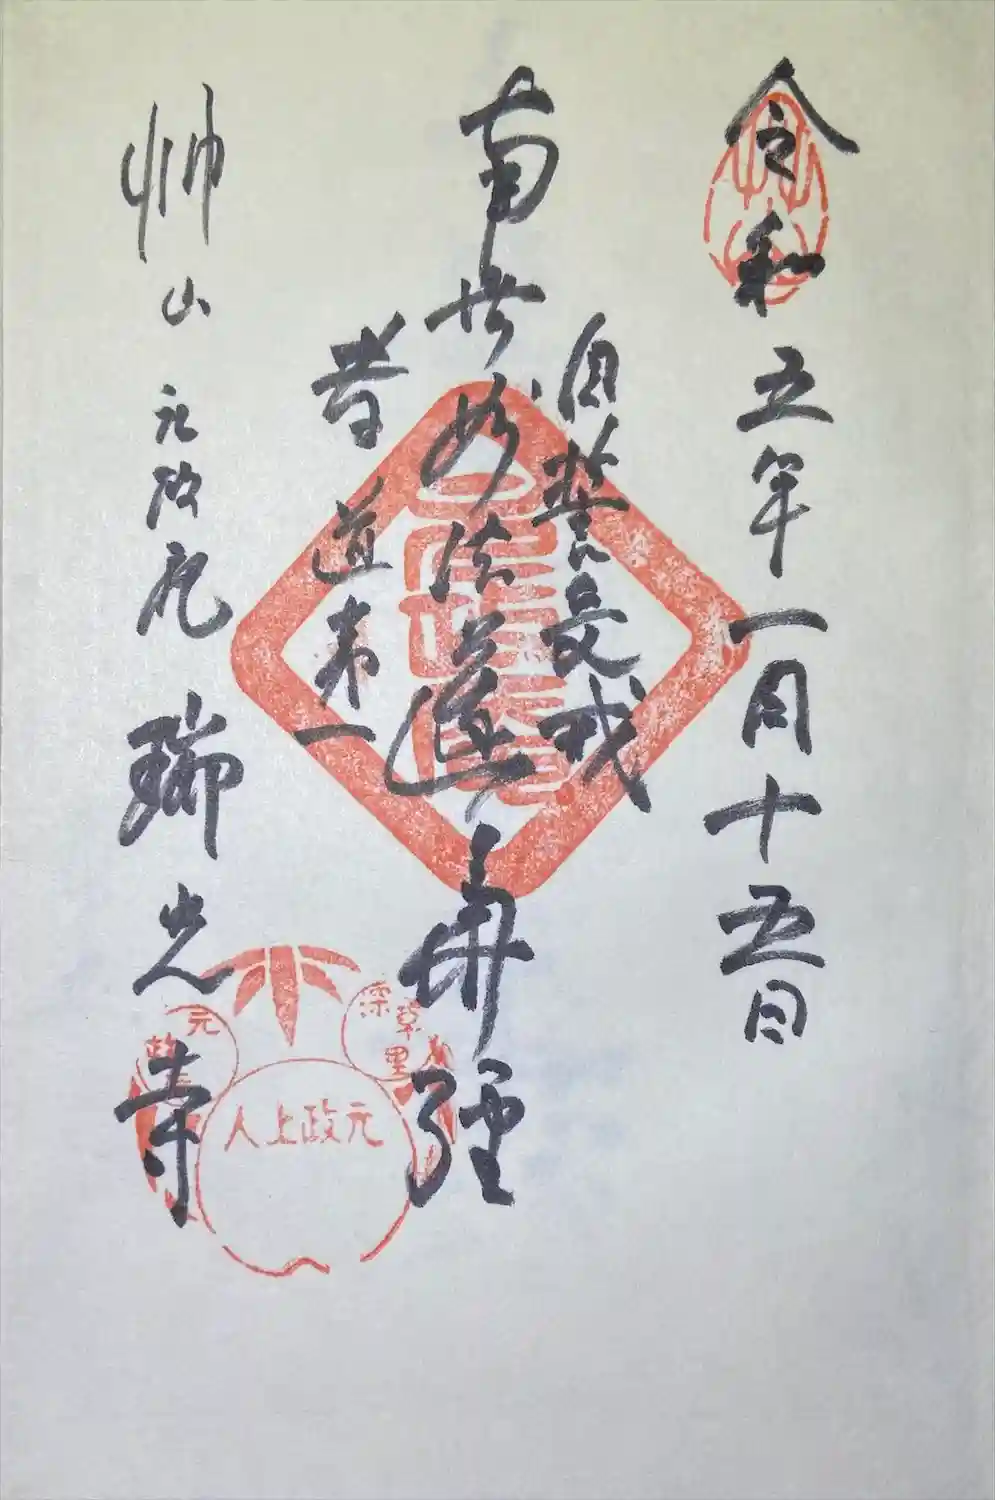 令和五年一月十五日
自誓受戒
南無妙法蓮華経
孝道第一
艸山元政庵 瑞光寺
深草里
元政上人
元政